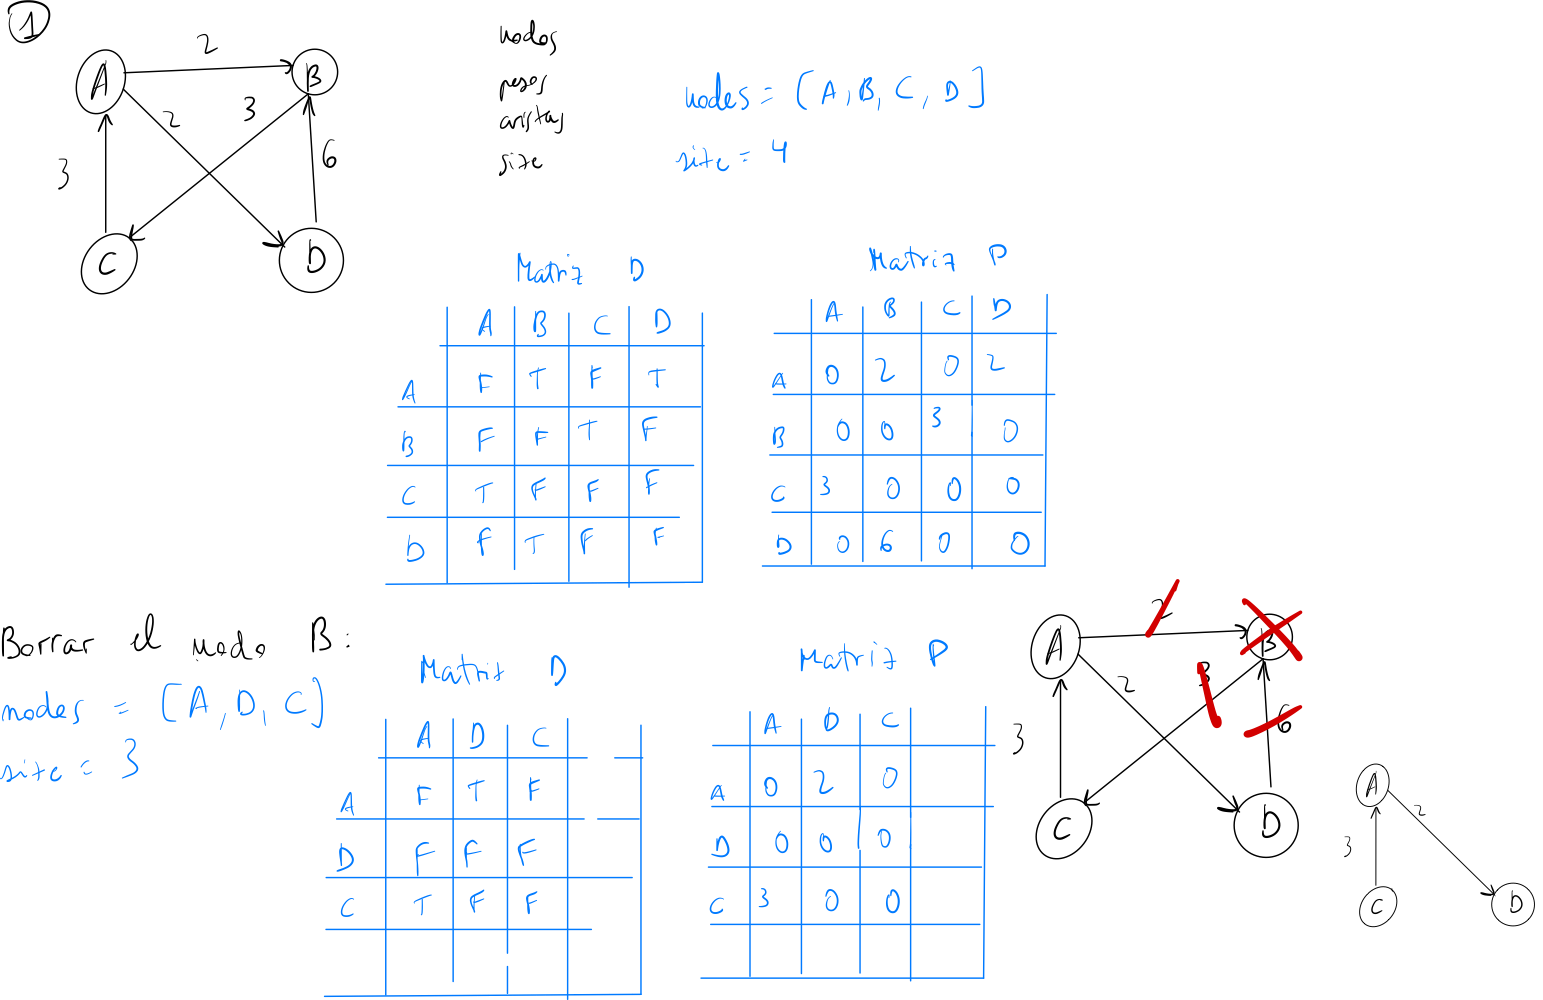 1
A 2 B
2 3
3 6
C D
nodos
pesos
aristas
size
nodes = [A, B, C, D]
size = 4
Matriz D
A B C D
A F T F T
B F F T F
C T F F F
D F T F F
Matriz P
A B C D
A 0 2 0 2
B 0 0 3 0
C 3 0 0 0
D 0 6 0 0
Borrar el nodo B:
nodes = [A, D, C]
size = 3
Matriz D
A D C
A F T F
D F F F
C T F F
Matriz P
A D C
A 0 2 0
D 0 0 0
C 3 0 0
A 2 B
2 3
3 6
C D
A
2
3
C D